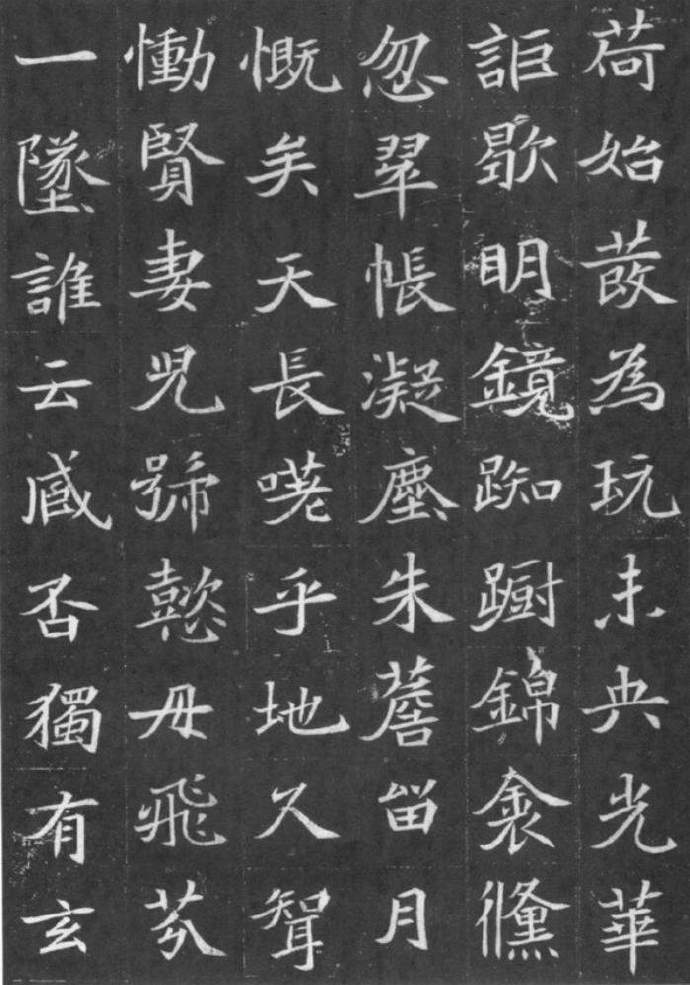 荷始蕟為玩未央光華
詎歇明鏡踟蹰錦衾儵
忽翠帳凝塵朱薝留月
慨矣天長嗟乎地久聟
慟賢妻児號懿毋飛芬
一墜誰云臧否獨有玄